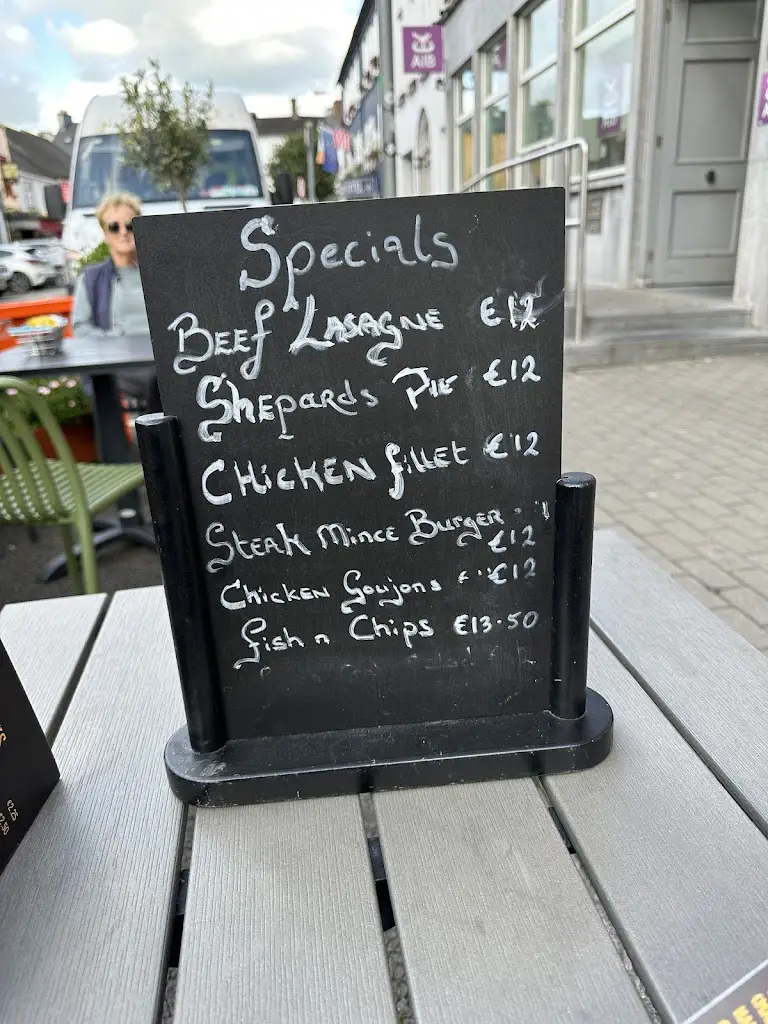 AIB
Specials
Beef Lasagne €12
Shepards Pie €12
Chicken fillet €12
Steak Mince Burger
€12
Chicken Goujons €12
fish n Chips €13.50
€2.25